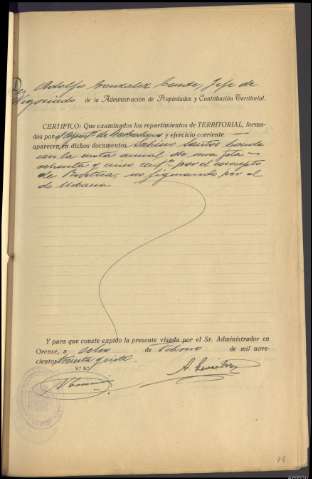 Don Adolfo Gonzalez Conde, Jefe de
Negociado de la Administración de Propiedades y Contribución Territorial.
CERTIFICO: Que examinados los repartimientos de TERRITORIAL, forma-
dos por el Ayunt.º de y ejercicio corriente
aparece, en dichos documentos Sabino Santos Conde
con la cuota anual de una pta
ochenta y cinco cents por el concepto
de Rústica, no figurando por el
de Urbana
Y para que conste expido la presente visada por el Sr. Administrador en
Orense, a ocho de Febrero de mil nove-
cientos treinta y
V.º B.º
A. González